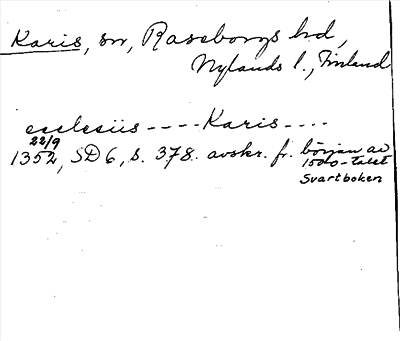 Karis, sn, Raseborgs hd,
Nylands l., Finland
ecclesiis ---- Karis ----
22/9
1352, SD 6, s. 378. avskr. fr. början av
1500-talet
Svartboken